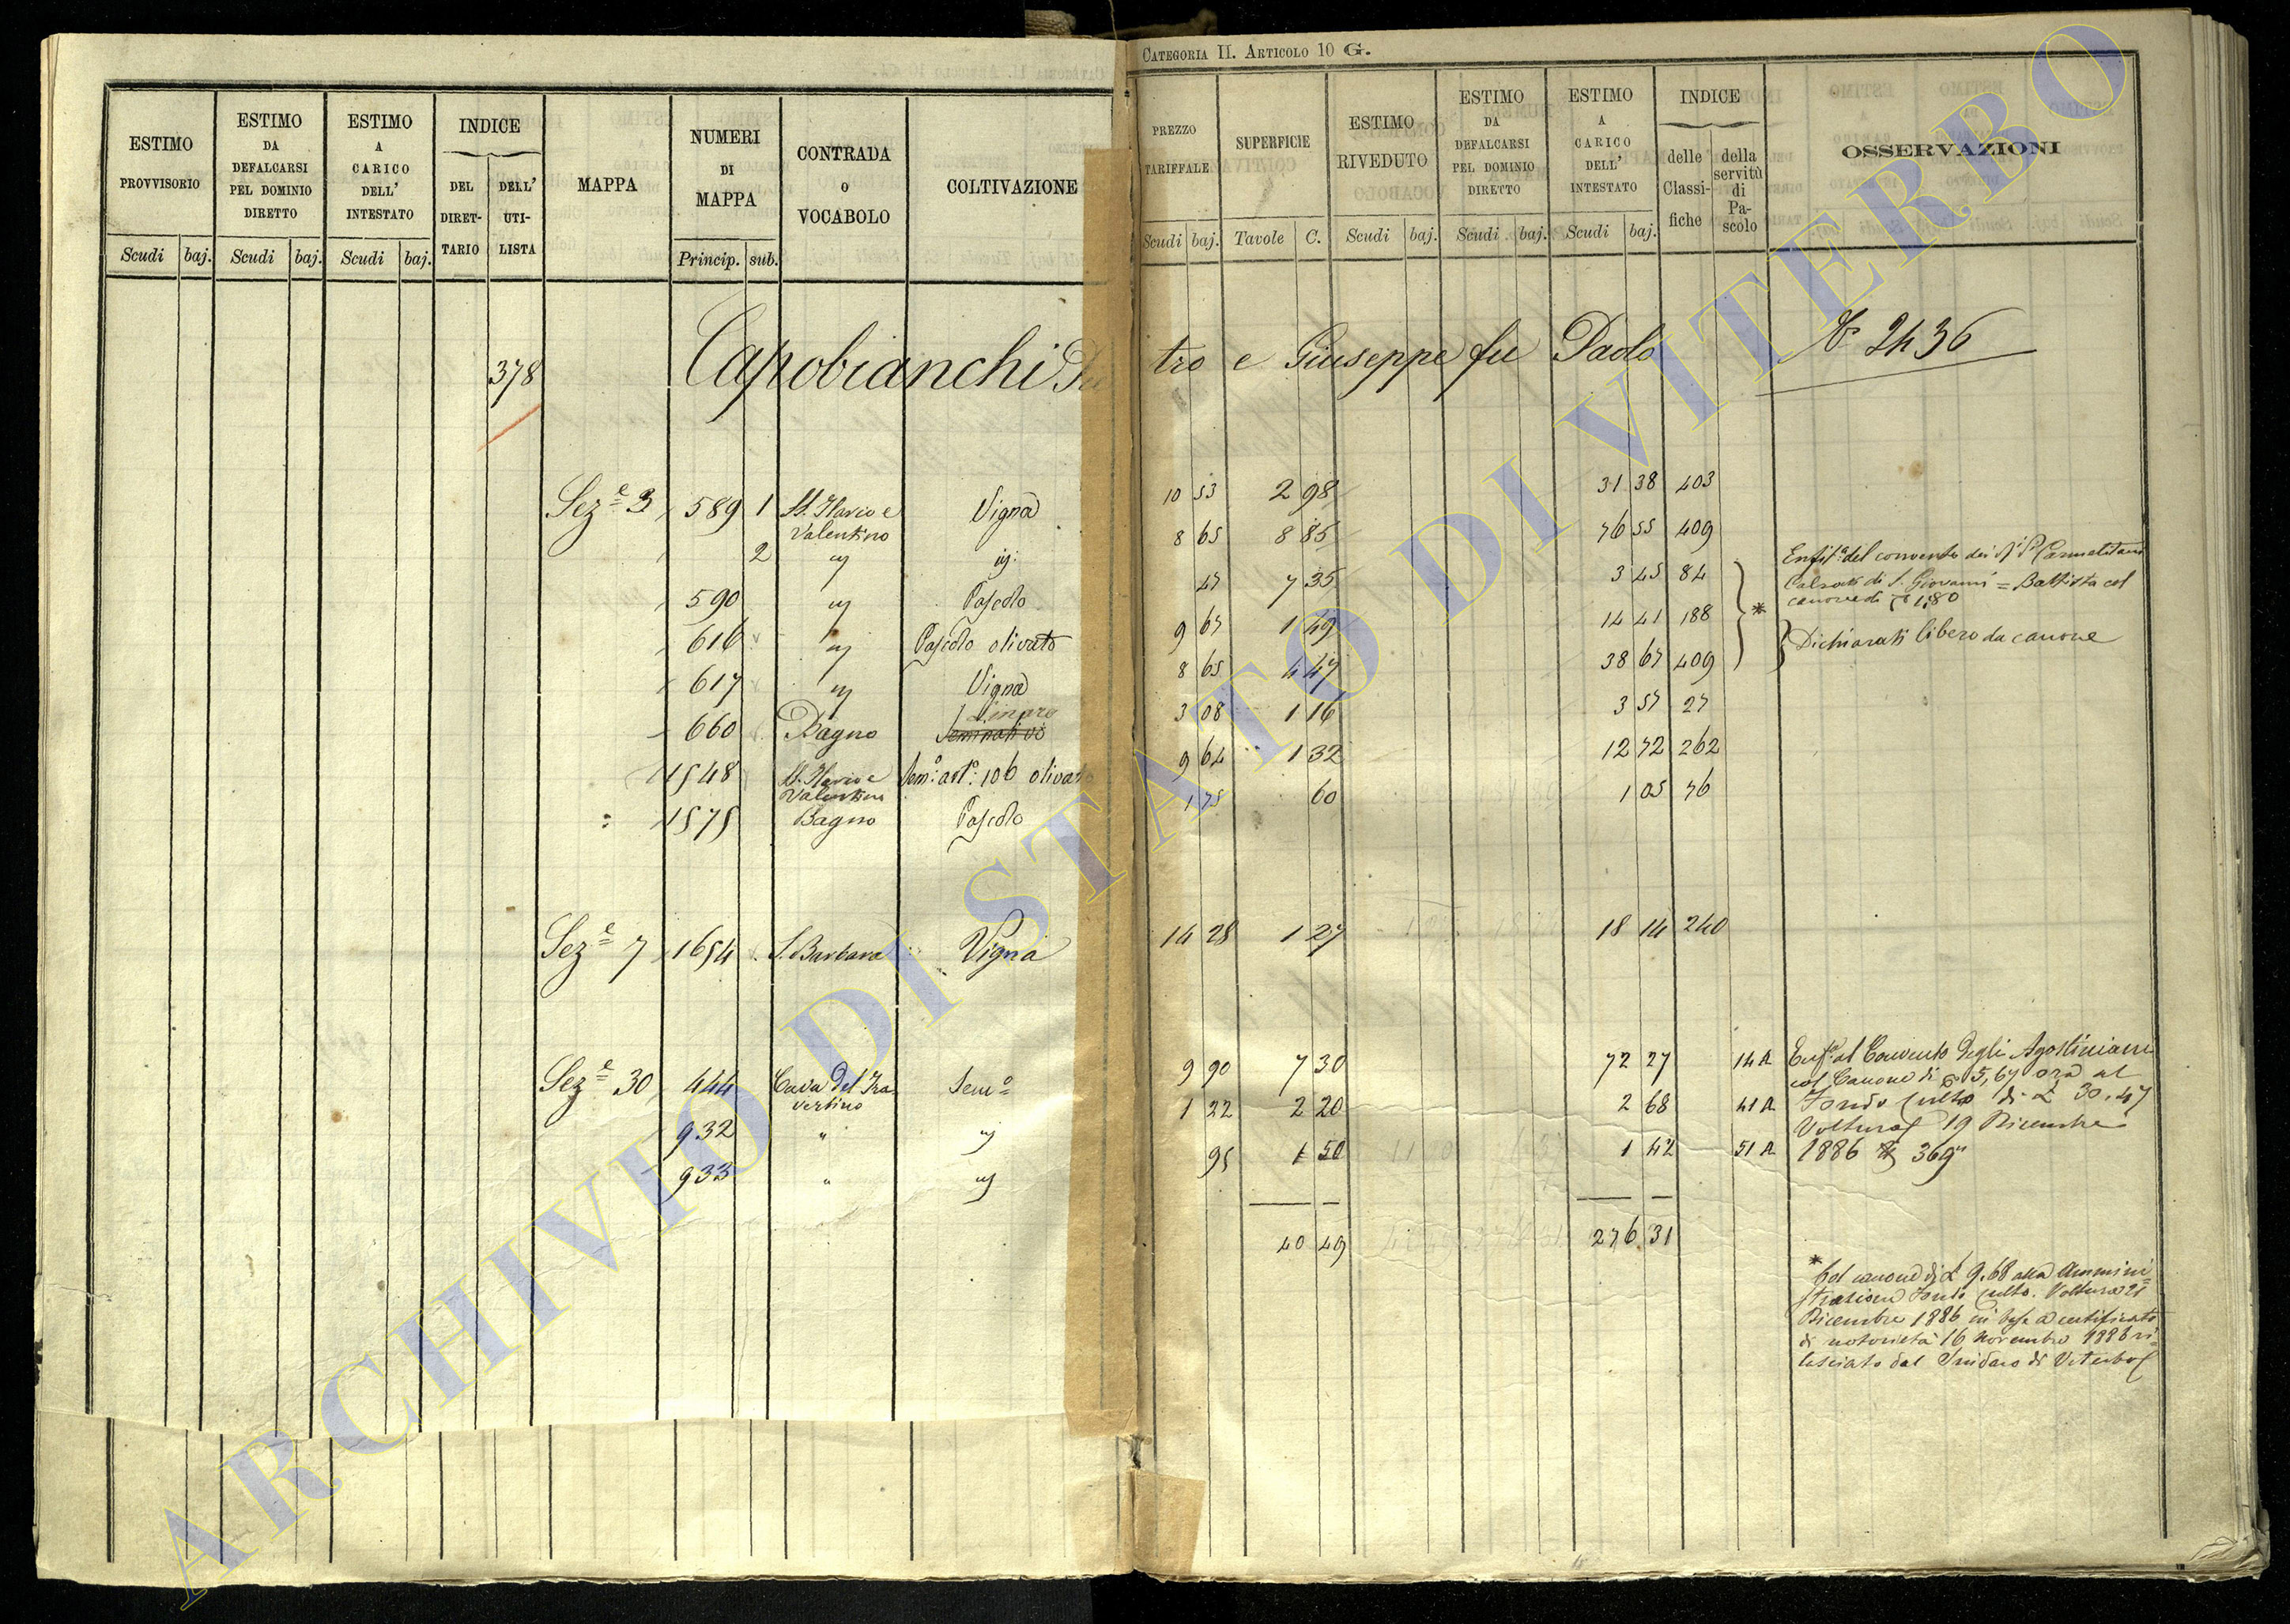 CATEGORIA II. ARTICOLO 10 G.
ESTIMO PROVVISORIO
ESTIMO DA DEFALCARSI PEL DOMINIO DIRETTO
ESTIMO A CARICO DELL' INTESTATO
INDICE
DEL DIRET-TARIO
DELL' UTI-LISTA
MAPPA
NUMERI DI MAPPA
CONTRADA O VOCABOLO
COLTIVAZIONE
PREZZO TARIFFALE
SUPERFICIE
ESTIMO RIVEDUTO
ESTIMO DA DEFALCARSI PEL DOMINIO DIRETTO
ESTIMO A CARICO DELL' INTESTATO
INDICE
delle Classi-fiche
della servitù di Pa-scolo
OSSERVAZIONI
Scudi baj. Scudi baj. Scudi baj. Princip. sub. Scudi baj. Tavole C. Scudi baj. Scudi baj. Scudi baj.
378 Capobianchi tro e Giuseppe fu Paolo No 2436
Seze 3 589 1 SS. Ilario e Valentino Vigna 10 53 2 98 31 38 403
2 " id: 8 65 8 85 76 55 409
590 " Pascolo 47 7 35 3 45 84
616 " Pascolo olivato 9 67 1 49 14 41 188
617 " Vigna 8 65 4 47 38 67 409
660 Bagno Seminativo 3 08 1 16 3 57 27
1548 SS. Ilario e Valentino Semo: arto: 106 olivato 9 64 1 32 12 72 262
1575 Bagno Pascolo 1 75 60 1 05 76
Enfita: del convento dei Carmelitani
Calzati di S. Giovanni = Battista col
canone di 1,80
* Dichiarati libero da canone
Seze 7 1654 S. Barbara Vigna 14 28 1 27 18 14 240
Seze 30 444 Cava del Travertino Semo 9 90 7 30 72 27 14 A
932 " " 1 22 2 20 2 68 41 A
933 " " 95 1 50 1 42 51 A
Enfa al Convento degli Agostiniani
col Canone di 5,67 ora al
Fondo Culto di £ 30,47
Voltura 19 Dicembre
1886 No 369
40 49 276 31
*
Col canone di £ 9.68 alla Ammini=
strazione Fondo Culto. Voltura 21
Dicembre 1886 in base a certificato
di notorietà 16 novembre 1886 ri=
lasciato dal Sindaco di Viterbo
ARCHIVIO DI STATO DI VITERBO